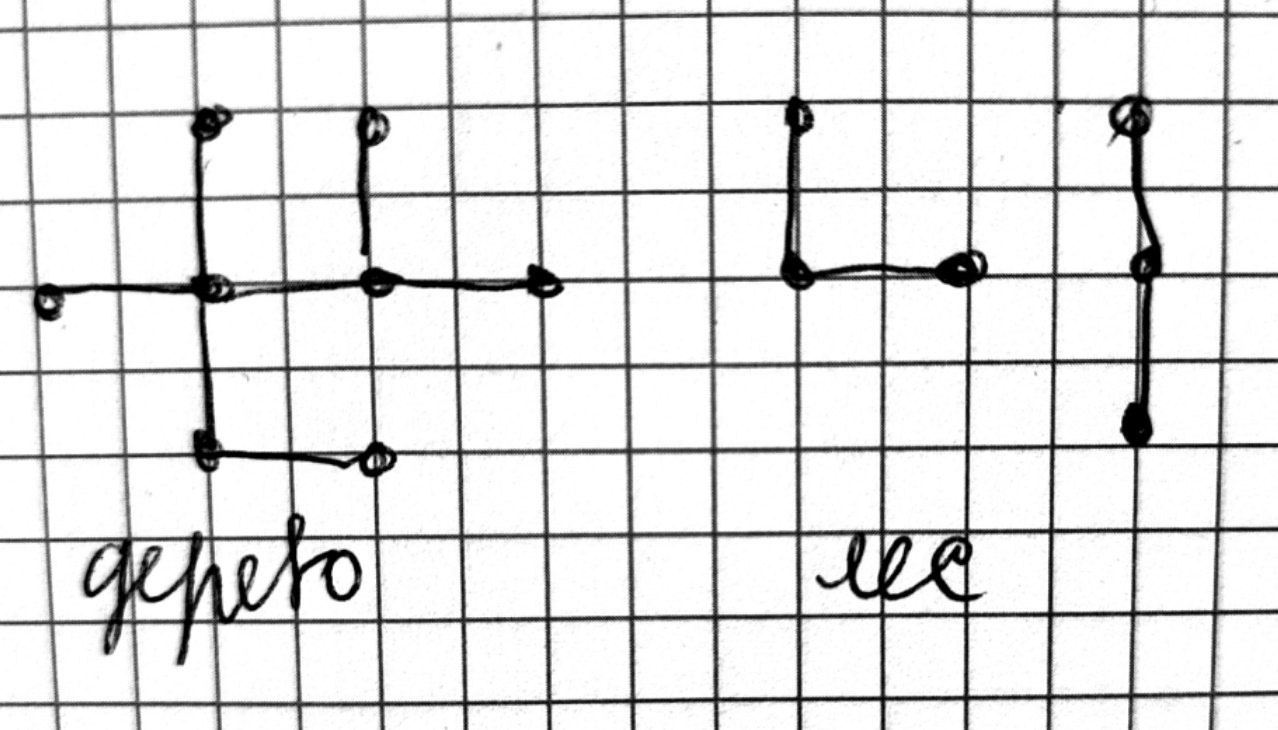 дерево
лес